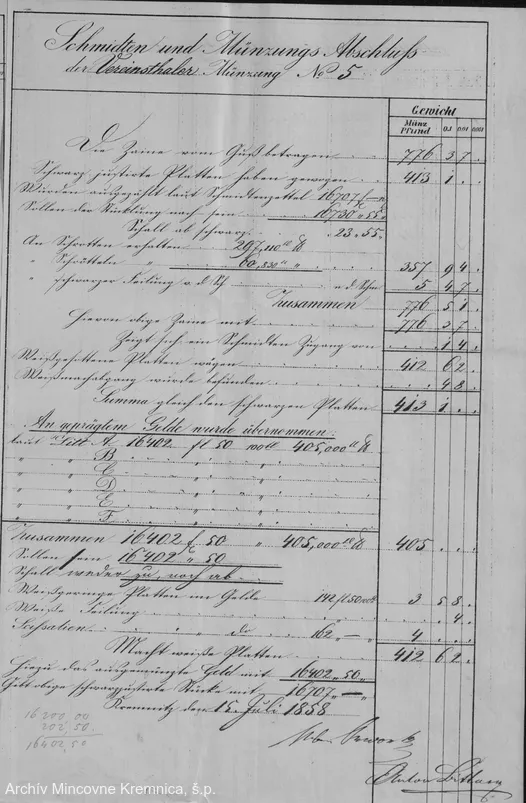 Schmidten und Münzungs Abschluß
der Vereinsthaler Münzung No 5
Gewicht
Münz Pfund 0.1 0.01 0.001
Die Zaine vom Guß betragen 776 3 7 .
Schwarz justirte Platten haben gewogen 413 1 . .
Wurden ausgezählt laut Schmidtenzettel 16707 f —
Sollen der Stücklung nach sein 16730 „ 55 „
Schall ab schwarz . 23 „ 55 .
An Schrotten erhalten 297,110
„ Schrötteln „ 60,830 357 9 4 .
„ schwarzer Feilung v. d. Sch 5 4 7 .
Zusammen 776 5 1 .
Hievon obige Zaine mit 776 3 7 .
Zeigt sich ein Schmidten Zugang von . 1 4 .
Weißgesottene Platten wägen 412 6 2 .
Weißmachabgang wurde befunden . 4 8 .
Summa gleich den schwarzen Platten 413 1 . .
An geprägtem Gelde wurde übernommen:
laut Litt. A 16402 fl 50 405,000
„ „ B „ „
„ „ C „ „
„ „ D „ „
„ „ E „ „
„ „ F „ „
Zusammen 16402 f 50 „ 405,000 405 . . .
Sollen sein 16402 „ 50
Schall weder zu, noch ab
Weißgeringe Platten im Gelde 142 fl 50 3 5 8 .
Weiße Feilung . . 4 .
„ do 162 „ — „ 4 . . .
Macht weiße Platten 412 6 2 .
Hiezu das ausgemünzte Geld mit 16402 „ 50 „
Gibt obige schwarzjustirte Stücke mit 16707 „ — „
Kremnitz den 15. Juli 1858
16200,00
202,50
16402,50
Anton
Archív Mincovne Kremnica, š.p.